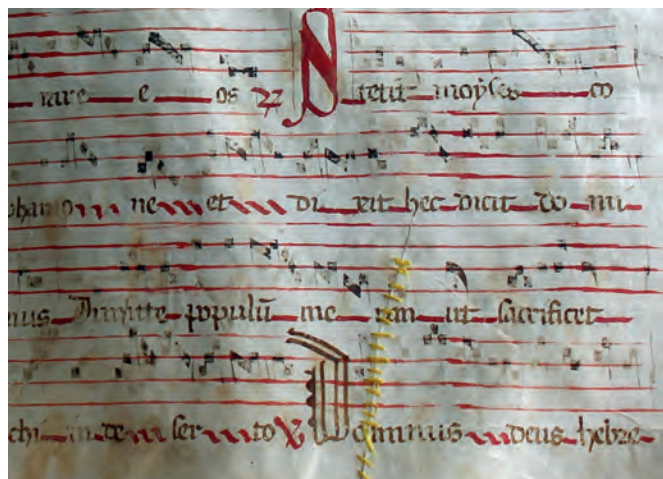 rare e os ℟ Stetit moyses co
pharao ne et di xit hec dicit do mi
nus Dimitte populū me um ut sacrificet
chi in de ser to ℣ Dominus deus hebre